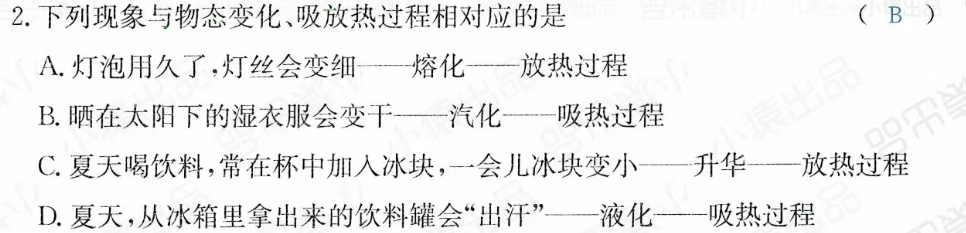 2.下列现象与物态变化、吸放热过程相对应的是 ( B )
A.灯泡用久了,灯丝会变细——熔化——放热过程
B.晒在太阳下的湿衣服会变干——汽化——吸热过程
C.夏天喝饮料,常在杯中加入冰块,一会儿冰块变小——升华——放热过程
D.夏天,从冰箱里拿出来的饮料罐会“出汗”——液化——吸热过程